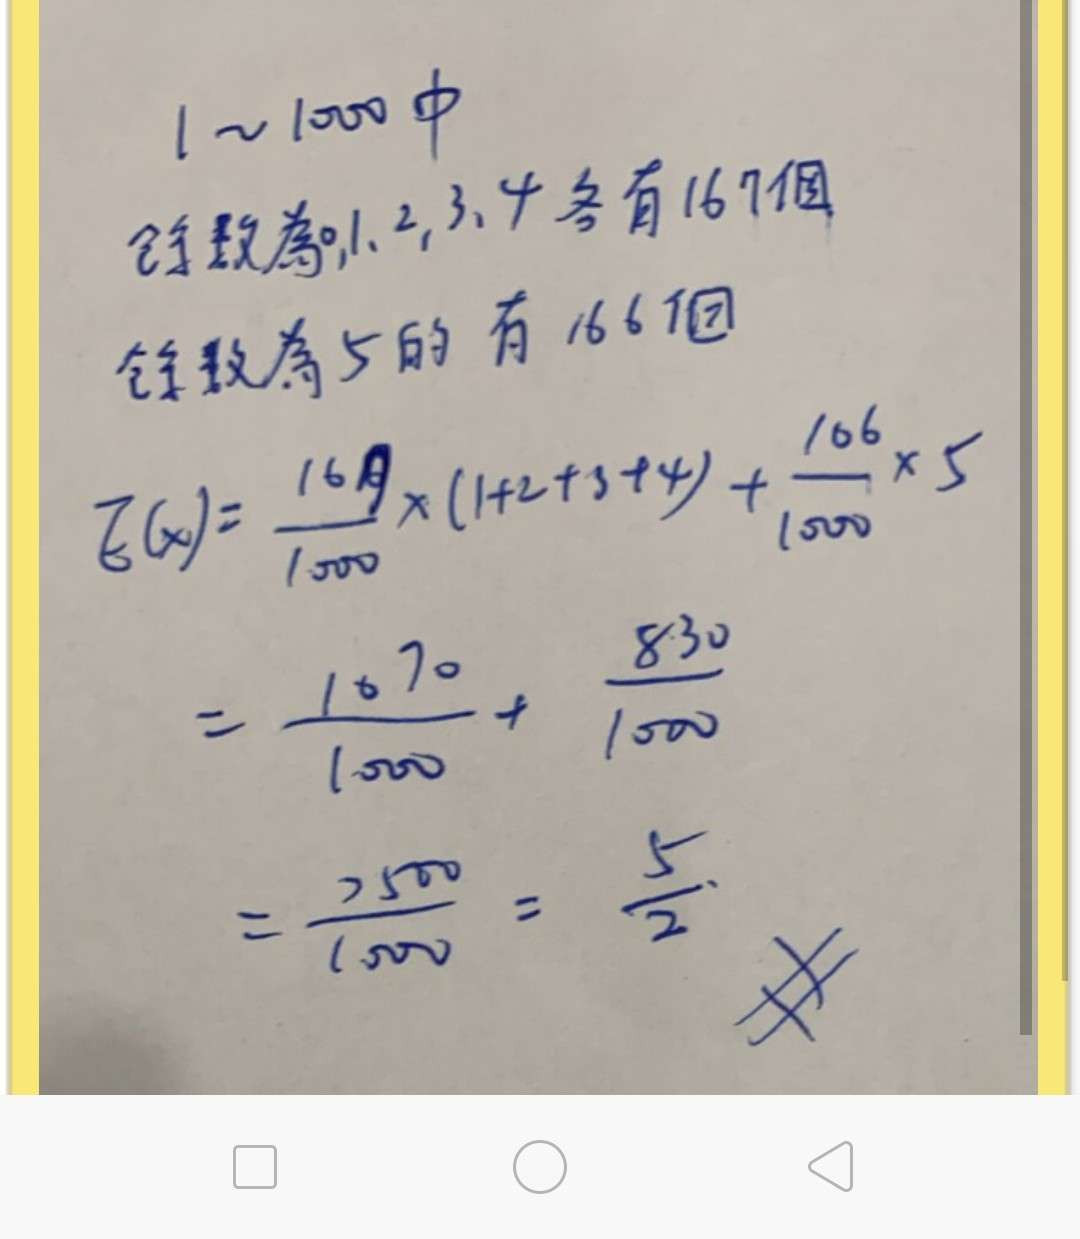 1 ~ 1000 中
餘數為0,1、2,3、4 各有167個
餘數為5的 有 166個
E(x) = 167/1000 × (1+2+3+4) + 166/1000 × 5
= 1670/1000 + 830/1000
= 2500/1000 = 5/2